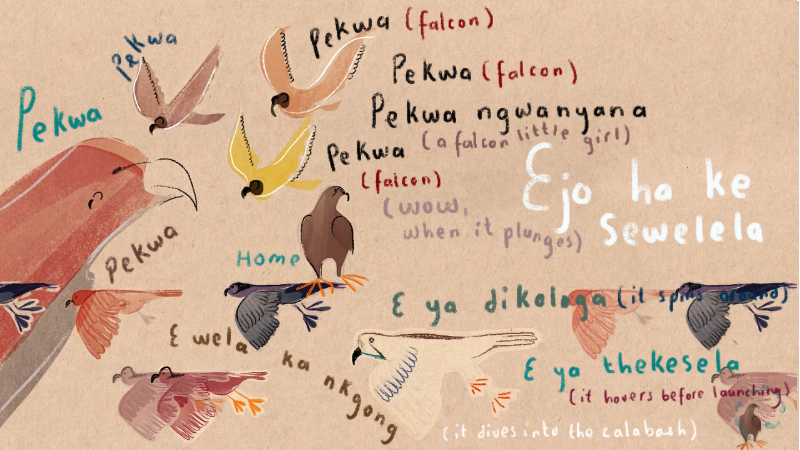 Pekwa
Pekwa
Pekwa (falcon)
Pekwa (falcon)
Pekwa ngwanyana
(a falcon little girl)
Pekwa
(falcon)
Ejo ha ke
Sewelela
(wow,
when it plunges)
Pekwa
Home
E ya dikologa (it spins around)
E wela ka nkgong
E ya thekesela
(it hovers before launching)
(it dives into the calabash)